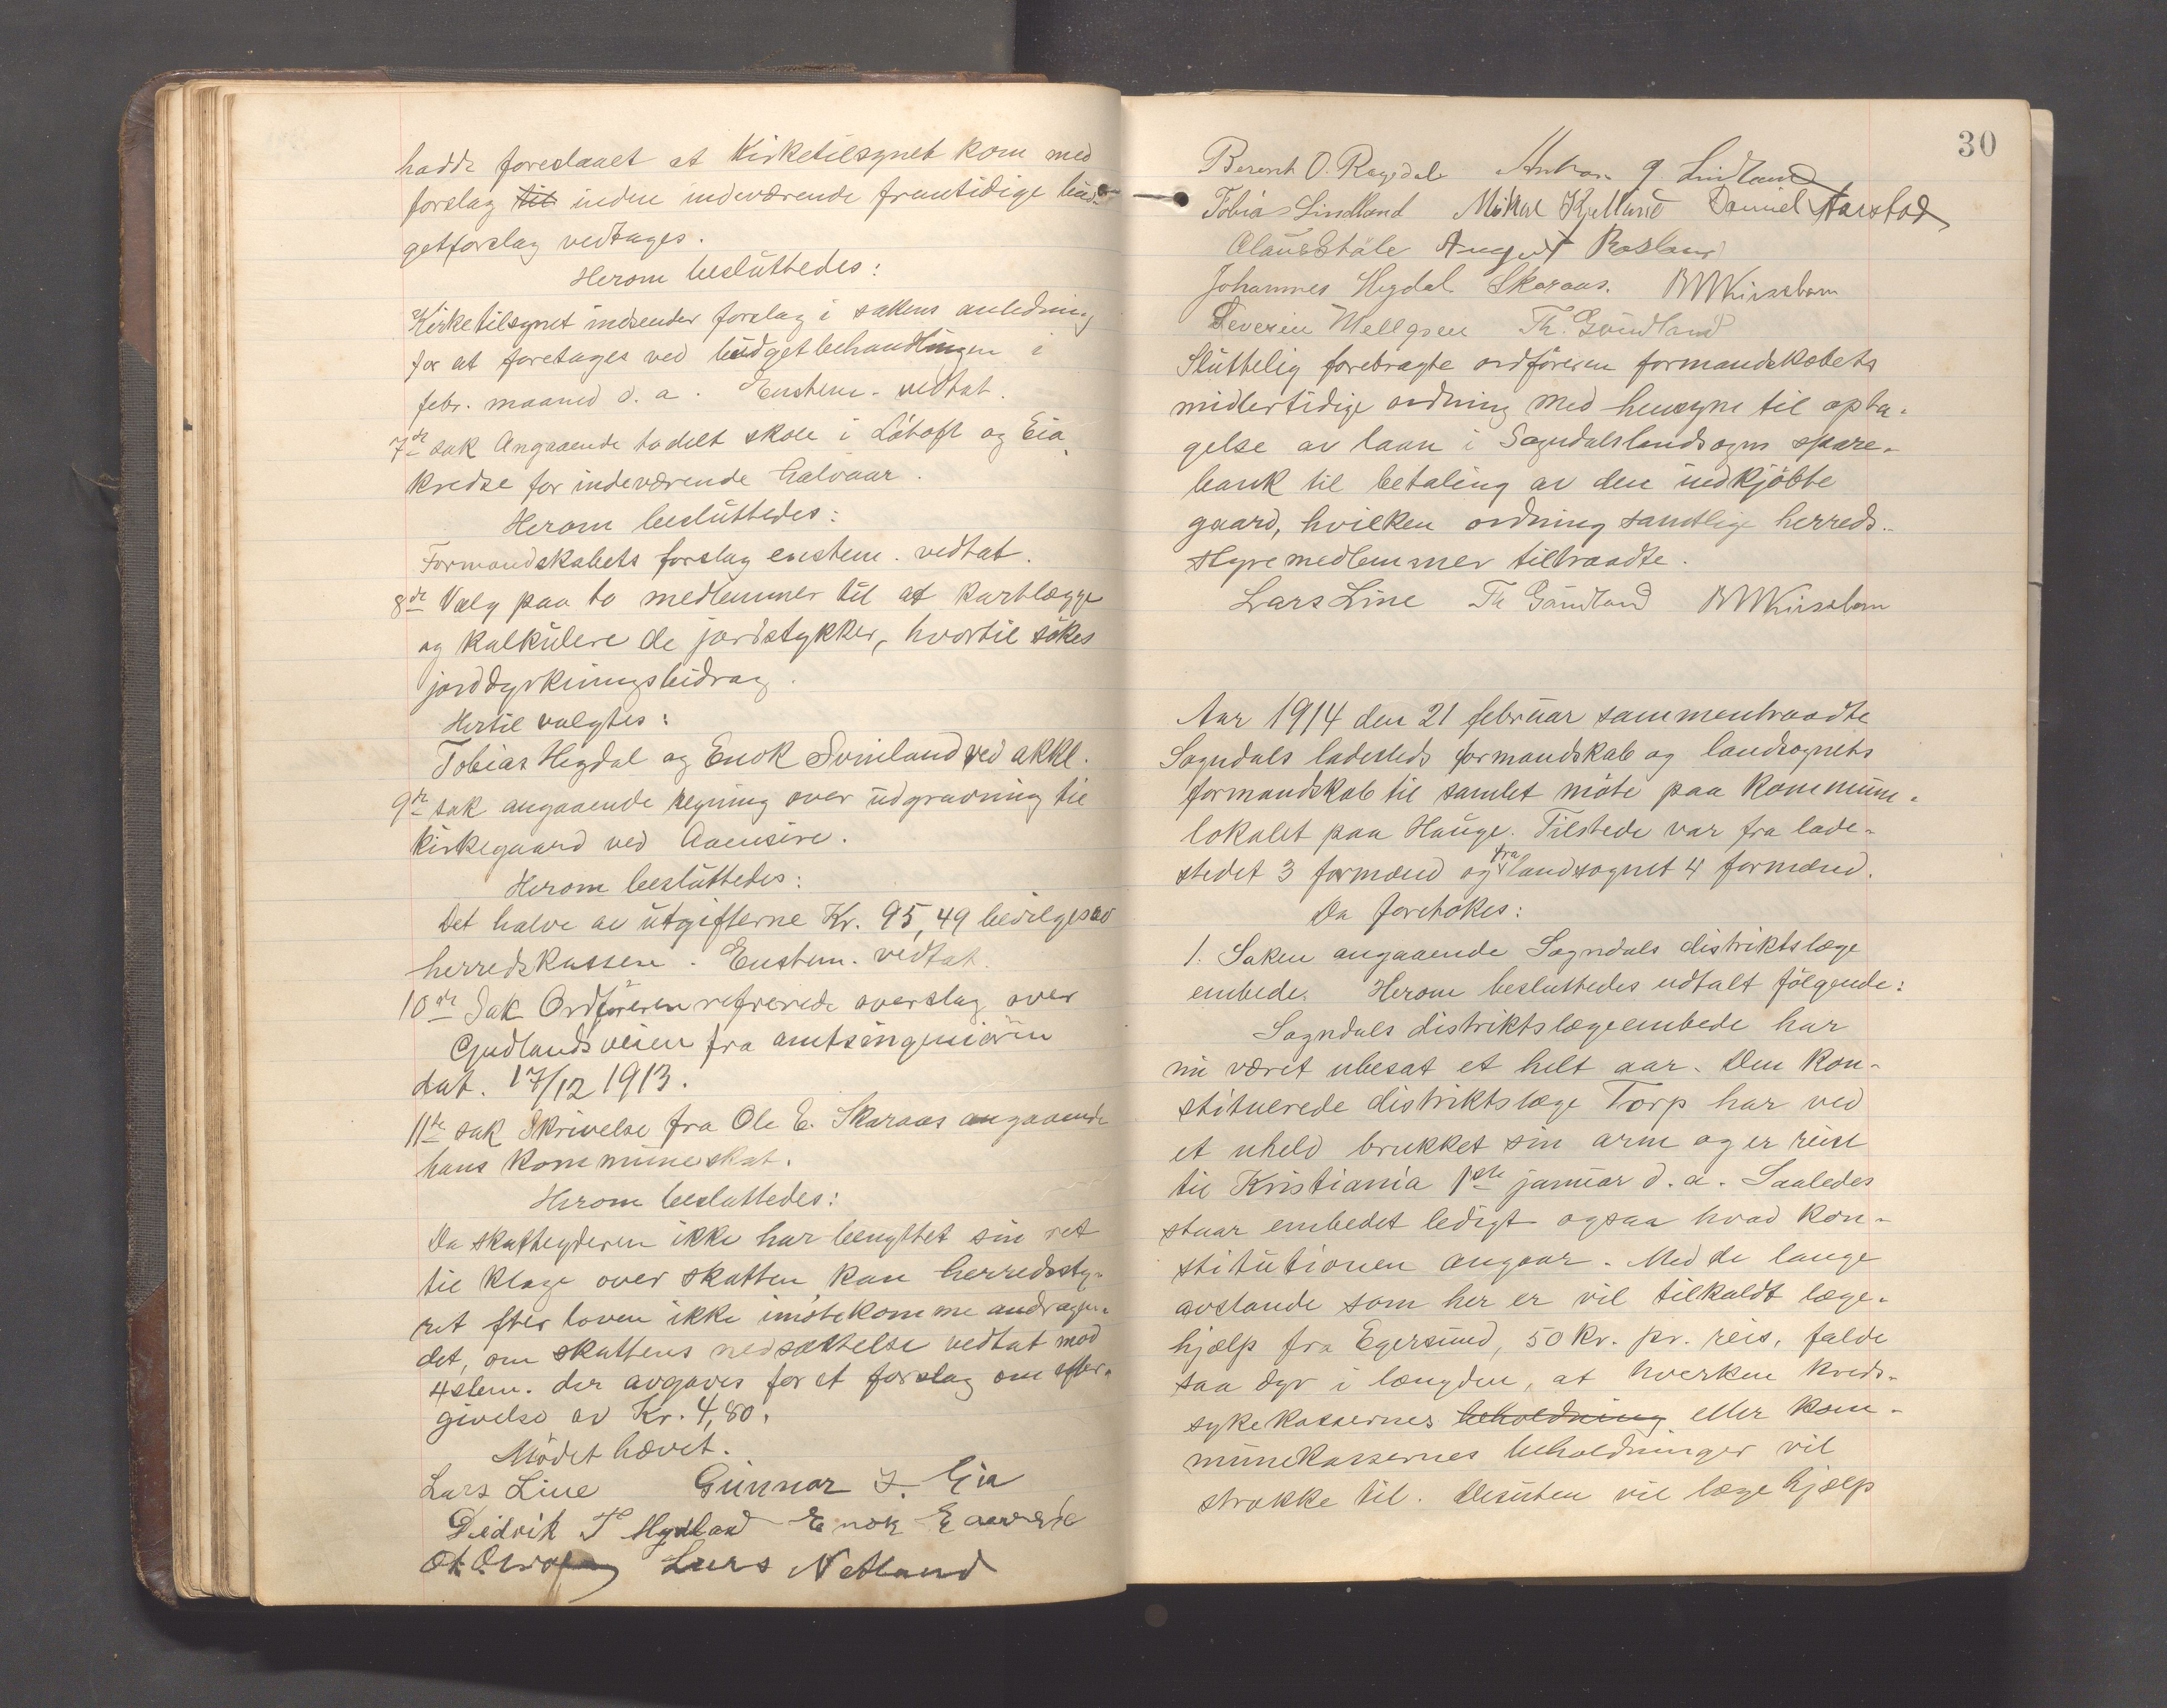 hadde foreslaaet at Kirketilsynet kom med
forslag til inden indeværende fremtidige bud-
getforslag vedtages.
Herom besluttedes:
Kirketilsynet indsender forslag i sakens anledning
for at foretages ved budgetbehandlingen i
febr. maaned d. a. Enstem. vedtat.
7de sak Angaaende todelt skole i Løtoft og Eia
kredse for indeværende halvaar.
Herom besluttedes:
Formandskabets forslag enstem. vedtat.
8de Valg paa to medlemmer til at kartlægge
og kalkulere de jordstykker, hvortil søkes
jorddyrkningsbidrag.
Hertil valgtes:
Tobias Hegdal og Enok Svinland ved akkl.
9de sak angaaende regning over udgravning til
kirkegaard ved Aaensire.
Herom besluttedes:
Det halve av utgifterne Kr. 95,49 bevilges av
herredskassen. Enstem. vedtat.
10de Sak Ordføreren refererede overslag over
Gudlandsveien fra amtsingeniøren
dat. 17/12 1913.
11te sak Skrivelse fra Ole E. Skaraas angaaende
hans kommuneskat.
Herom besluttedes:
Da skatteyderen ikke har benyttet sin ret
til klage over skatten kan herredssty-
ret efter loven ikke imøtekomme andragen-
det, om skattens nedsættelse vedtat mod
4 stem. der avgaves for et forslag om efter-
givelse av Kr. 4,80.
Mødet hævet.
Lars Line Gunnar T. Eia
Diedrik T Mydland Enok E
Lars Netland
30
Berent O. Rægedal Anton G. Lindland
Tobias Lindland Mikal Kjelland Daniel Aarstad
Claus Ståle August Rosland
Johannes Hegdal Skaraas. BMKirsebom
Severin Mellgren Th. Gåudland
Sluttelig forebragte ordføreren formandskabets
midlertidige ordning med hensyn til opta-
gelse av laan i Sogndalslandsogns spare-
bank til betaling av den indkjøbte
gaard, hvilken ordning samtlige herreds-
styremedlemmer tiltraadte.
Lars Line Th Gåudland BMKirsebom
Aar 1914 den 21 februar sammentraadte
Sogndals ladesteds formandskab og landsognets
formandskab til samlet møte paa kommune-
lokalet paa Hauge. Tilstede var fra lade-
stedet 3 formænd og fra landsognet 4 formænd.
Da foretokes:
1. Saken angaaende Sogndals distriktslæge
embede. Herom besluttedes udtalt følgende:
Sogndals distriktslægeembede har
nu været ubesat et helt aar. Den kon-
stituerede distriktslæge Torp har ved
et uheld brukket sin arm og er reist
til Kristiania 1ste januar d. a. Saaledes
staar embedet ledigt ogsaa hvad kon-
stitutionen angaar. Med de lange
avstande som her er vil tilkaldt læge-
hjælp fra Egersund, 50 kr. pr. reis, falde
saa dyr i længden, at hverken kreds-
sykekassernes beholdning eller kom-
munekassernes beholdninger vil
strække til. Desuten vil lægehjælp